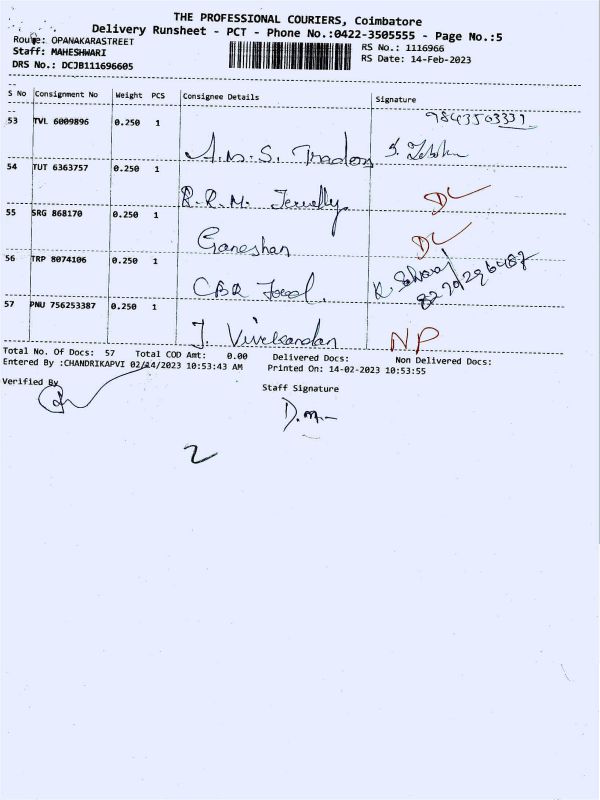 THE PROFESSIONAL COURIERS, Coimbatore
Delivery Runsheet - PCT - Phone No.:0422-3505555 - Page No.:5
Route: OPANAKARASTREET
Staff: MAHESHWARI
RS No.: 1116966
DRS No.: DCJB111696605
RS Date: 14-Feb-2023
S No Consignment No Weight PCS Consignee Details Signature
9843503331
53 TVL 6009896 0.250 1
A.M.S. Traders S.
54 TUT 6363757 0.250 1
R.R.M. Jewelly DL
55 SRG 868170 0.250 1
Ganeshan DL
56 TRP 8074106 0.250 1
CBR Food. K.
57 PNU 756253387 0.250 1
J. Vivekanandan NP
Total No. Of Docs: 57 Total COD Amt: 0.00 Delivered Docs: Non Delivered Docs:
Entered By :CHANDRIKAPVI 02/14/2023 10:53:43 AM Printed On: 14-02-2023 10:53:55
Verified By Staff Signature
D.M
2